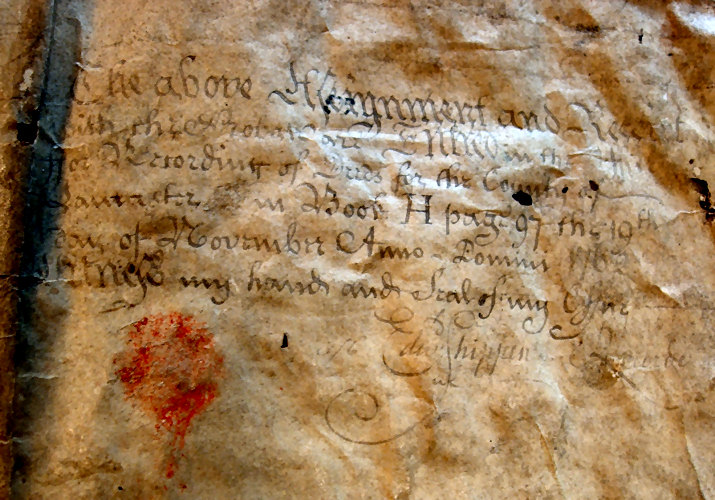 The above Assignment and Receipt
with the Probate are Entred in the Office
for Recording of Deeds for the County of
Lancaster in Book H page 97 the 19th
day of November Anno Domini 1763
Witness my hand and Seal of my Office
Shippen